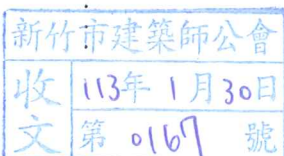 新竹市建築師公會
收文
113年1月30日
第0167號